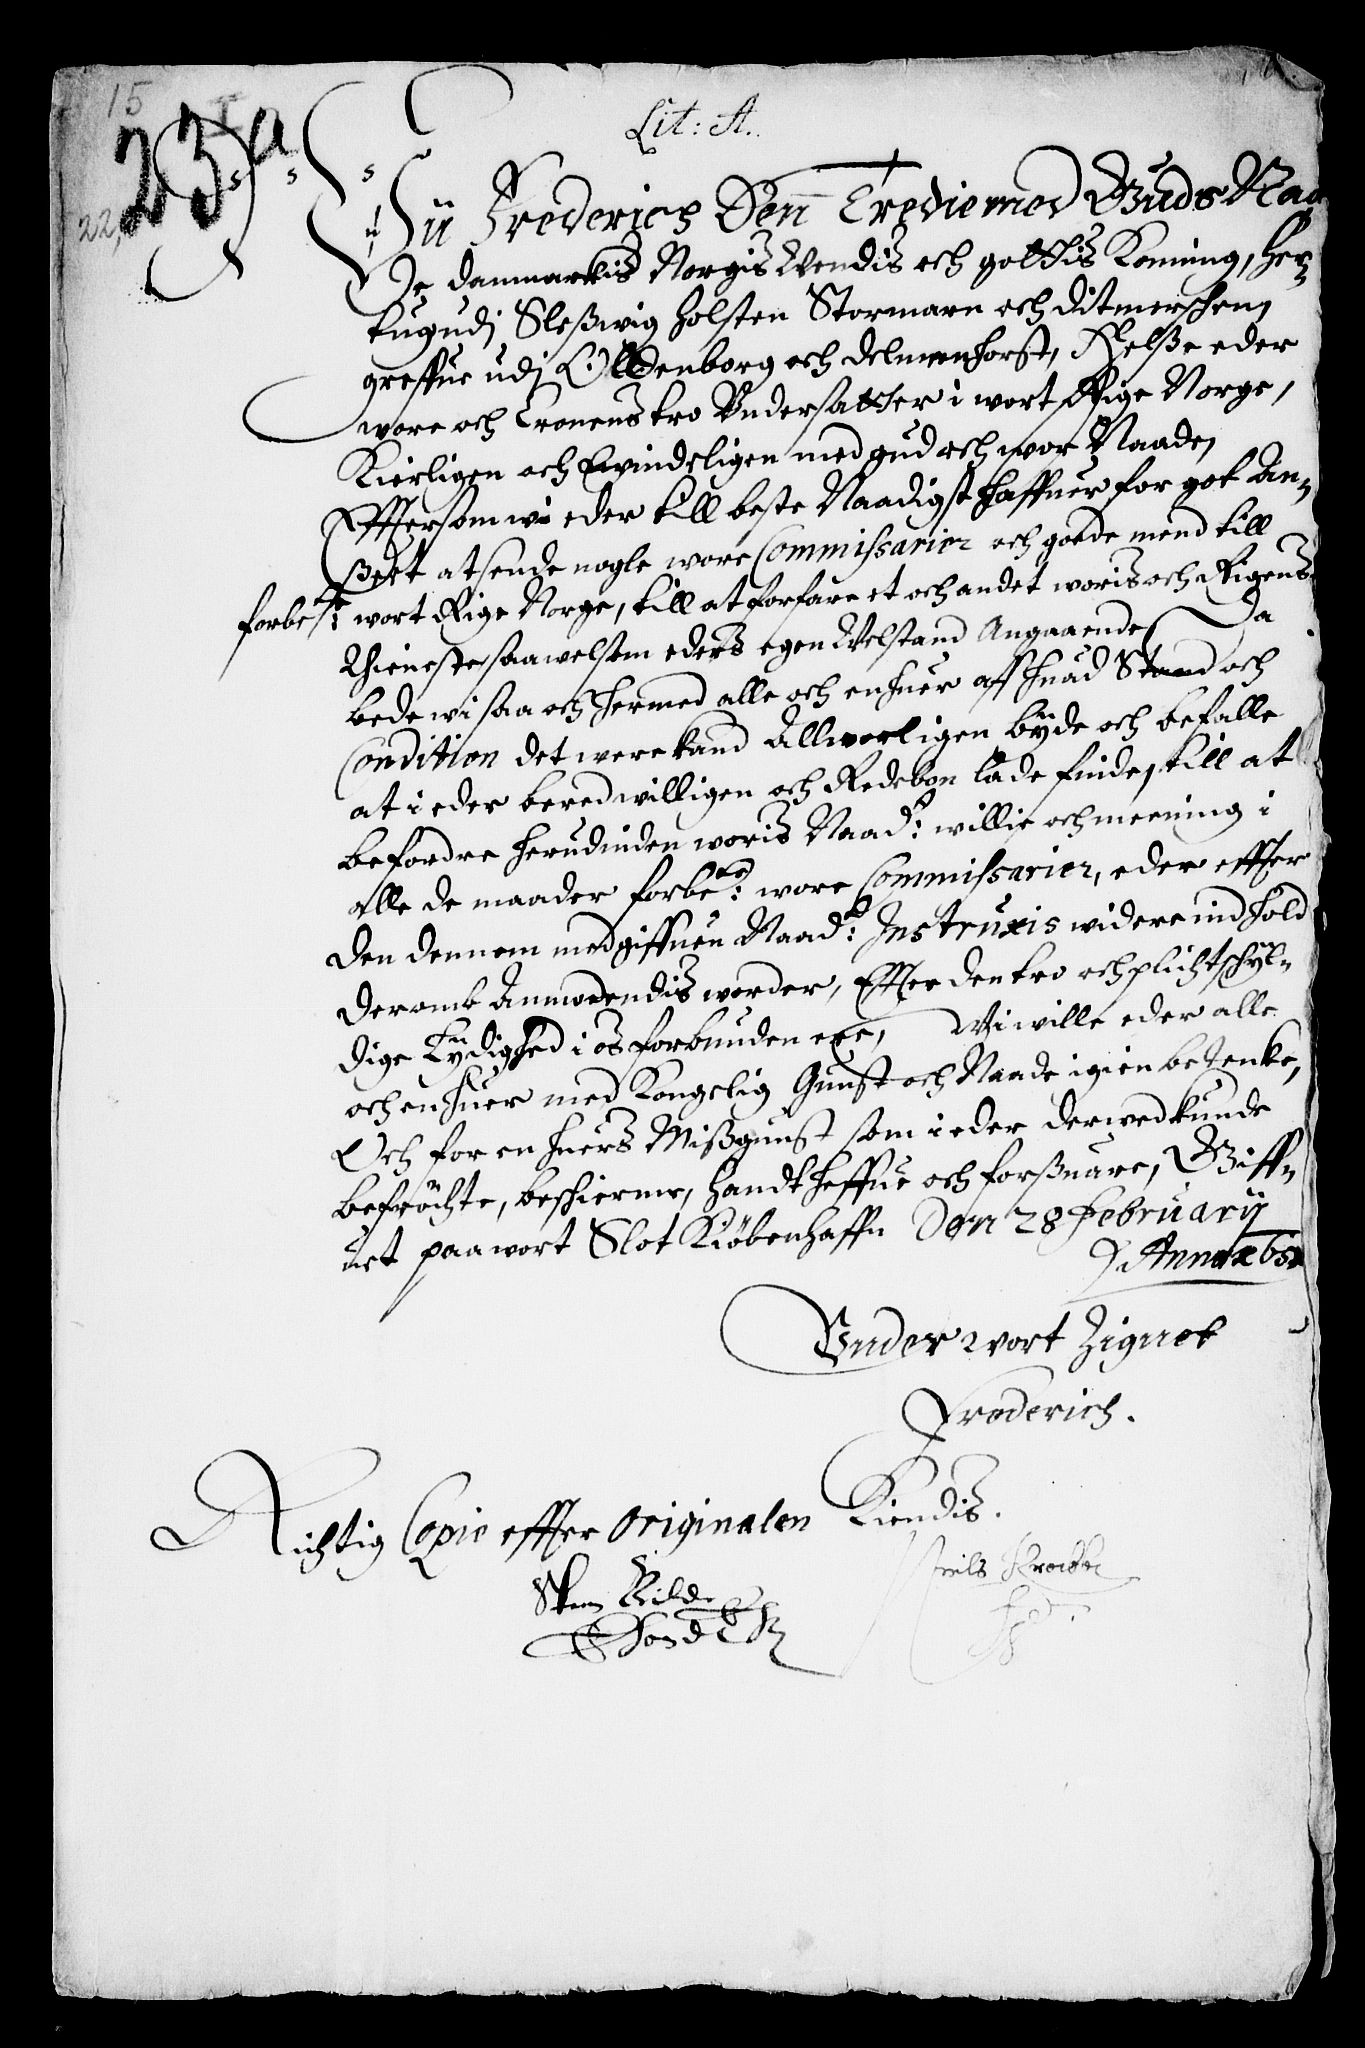 15
23 a
22,
Lit: A.
Wii Frederich Denn Tredie med Guds Naa
de danmarkis Norgis Wendis och gottis Konning, Her-
tug udj Sleßwig Holsten Stormarn och Ditmerschen,
greffue udj Olldenborg och Delmenhorst, Helße eder
wore och Cronens tro Undersatter i wort Rige Norge,
Kierligen och Ewindeligen med gud och wor Naade,
Effter som wi eder till beste Naadigst haffuer for got An-
ßeet at sende nogle wore Commissarier och goede mend till
forbete: wort Rige Norge, till at forfare et och andet woris och Rigens
Thieneste, saawelsom eders egen Welstand Angaaende, Da
bede wi saa och hermed alle och enhuer aff huad Stand och
Condition det were kand Allworligen byde och befalle
at i eder beredwilligen och Redebon lade finde, till at
befordre herudinden woris Naad: willie och meening i
alle de maader forbete: wore Commissarier, eder effter
den dennem medgiffuen Naad: Instruxis widere indhold
deromb Anmodendis worder, Effter den tro och plichtschyl-
dige Lydighed i os forbunden ere, Wi wille eder alle
och enhuer med Kongelig Gunst och Naade igien betenke,
Och for en huers Mißgunst som i eder derwed kunde
befröchte, beschierme, handtheffue och forßuare, Giff-
uet paa wort Slot Kiöbenhaffn Den 28 February
Anno 165
Under wort Zignet
Frederich.
Richtig Copie effter Originalen Kiendis.
Sten Bilde
Niels Krabbe